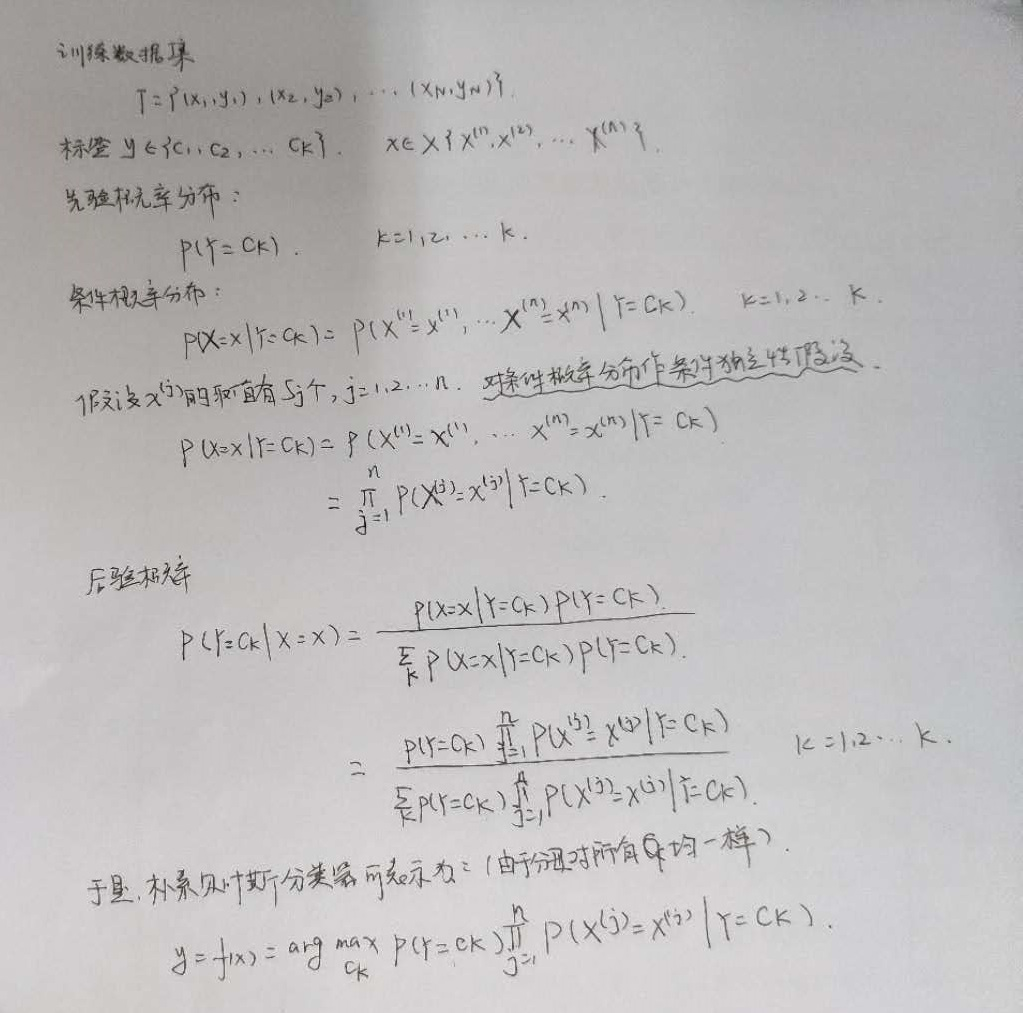 训练数据集
T={(x₁,y₁),(x₂,y₂),…(x_N,y_N)}.
标签 y∈{C₁,C₂,…C_K}. x∈X{x⁽¹⁾,x⁽²⁾,…x⁽ⁿ⁾}.
先验概率分布:
P(Y=C_K). K=1,2,…K.
条件概率分布:
P(X=x|Y=C_K)=P(X⁽¹⁾=x⁽¹⁾,…X⁽ⁿ⁾=x⁽ⁿ⁾|Y=C_K). K=1,2…K.
假设x⁽ʲ⁾的取值有Sj个,j=1,2…n. 对条件概率分布作条件独立性假设.
P(X=x|Y=C_K)=P(X⁽¹⁾=x⁽¹⁾,…X⁽ⁿ⁾=x⁽ⁿ⁾|Y=C_K)
=∏_{j=1}^{n} P(X⁽ʲ⁾=x⁽ʲ⁾|Y=C_K).
后验概率
P(Y=C_K|X=x)= \frac{P(X=x|Y=C_K)P(Y=C_K).}{∑_K P(X=x|Y=C_K)P(Y=C_K).}
= \frac{P(Y=C_K)∏_{j=1}^{n} P(X⁽ʲ⁾=x⁽ʲ⁾|Y=C_K)}{∑_K P(Y=C_K)∏_{j=1}^{n} P(X⁽ʲ⁾=x⁽ʲ⁾|Y=C_K).} K=1,2…K.
于是,朴素贝叶斯分类器可表示为:(由于分母对所有C_K均一样).
y=f(x)=arg max_{C_K} P(Y=C_K)∏_{j=1}^{n} P(X⁽ʲ⁾=x⁽ʲ⁾|Y=C_K).